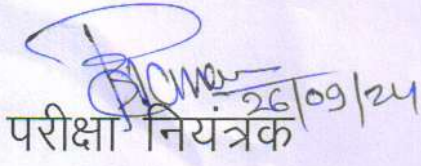 26/09/24
परीक्षा नियंत्रक